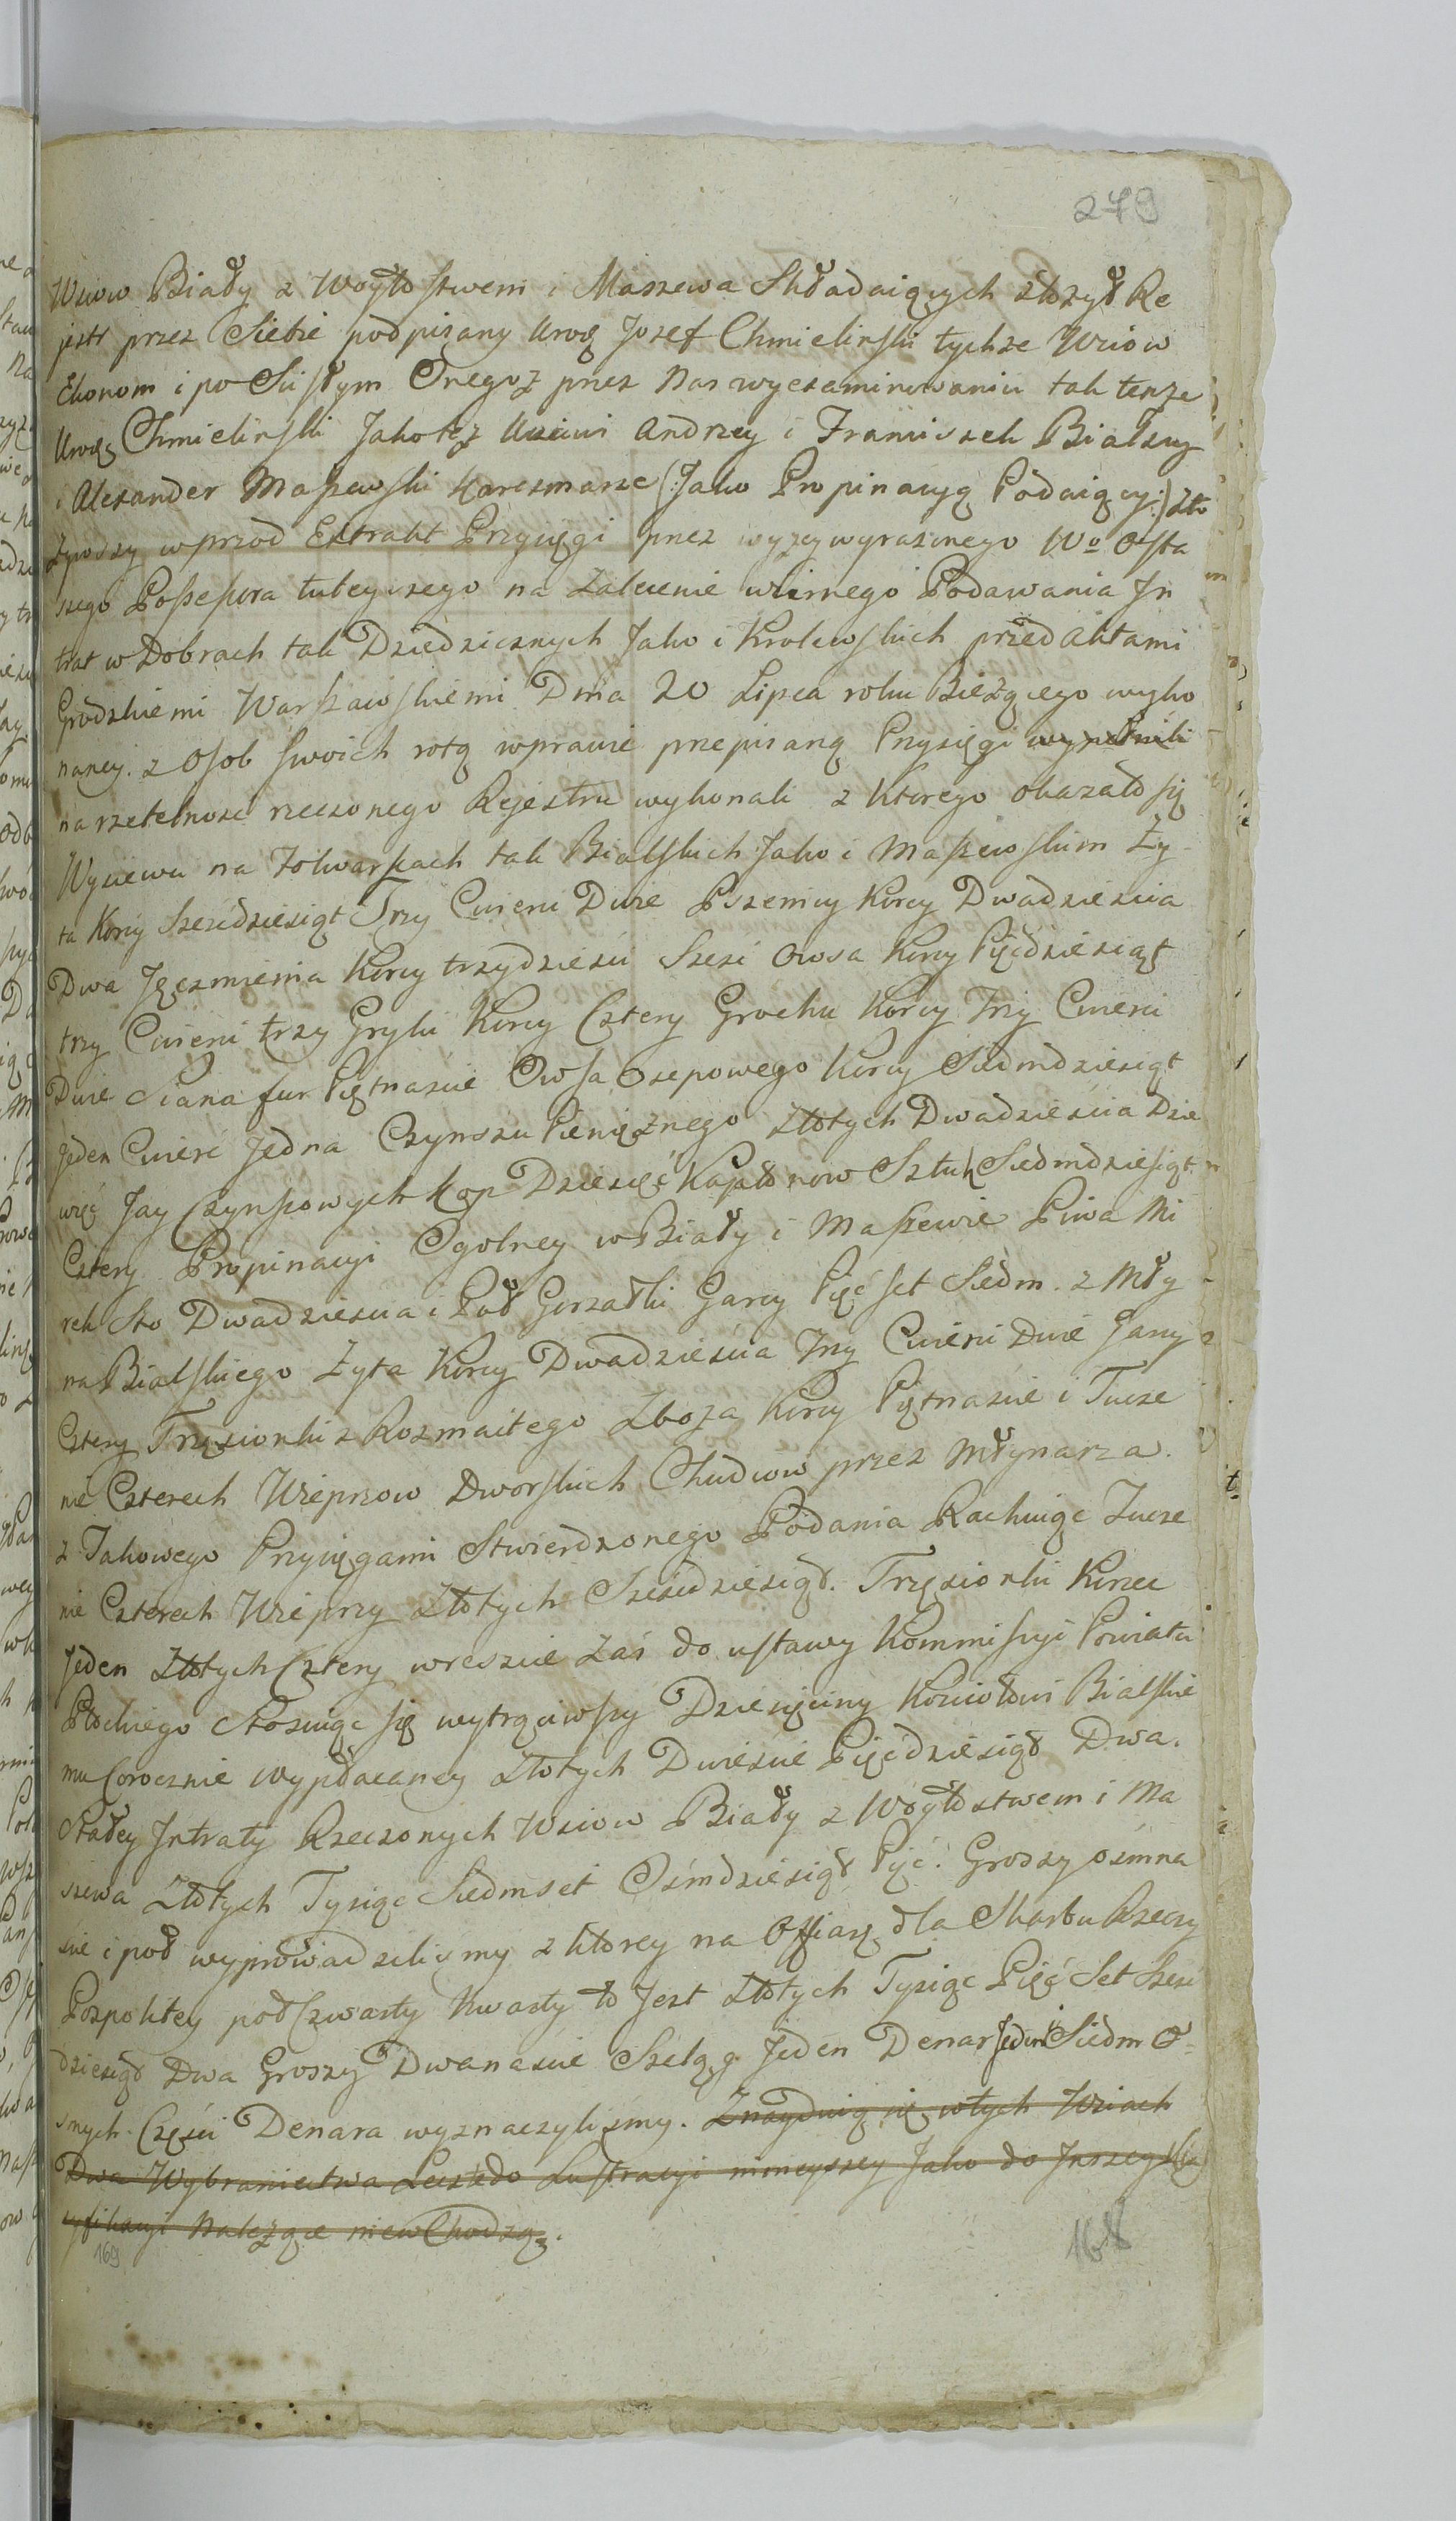 279
Wsiow Biały z Woytostwem i Maszewa Składaiących złozył Re
jestr przez Siebie podpisany Urodz Jozef Chmielinski tychze Wsiow
Ekonom i po Scisłym Onegoz przez Nas wyexaminowaniu tak tenze
Urodz Chmielinski Jako tez Andrzey i Franciszek Bialscy
i Alexander Maszewski Karczmarze (:Jako Propinacyą Podaiący:) zło
zywszy wprzod Extrakt Przysięgi przez wyzey wyrazonego Wo Osta
szego Possessora tuteyszego na Zalecenie wiernego Podawania In
trat w Dobrach tak Dziedzicznych Jako i Krolewskich przed Aktami
Grodzkiemi Warszawskiemi Dnia 20 Lipca roku Biezącego wyko
naney. z Osob swoich rotą wprawie przepisaną Przysięgi wypełnili
na rzetelnosc rzeczonego Rejestru wykonali z Ktorego okazało się
Wysiewu na Folwarkach tak Bialskich Jako i Maszewskim Ży
ta Korcy Szescdziesiąt Trzy Cwierci Dwie Pszenicy Korcy Dwadziescia
Dwa Jęczmienia Korcy trzydziesci Szesc Owsa Korcy Pięcdziesiąt
trzy Cwierci trzy Gryki Korcy Cztery Grochu Korcy Trzy Cwierci
Dwie Siana fur Piętnascie Owsa Osepowego Korcy Siedmdziesiąt
Jeden Cwierć Jedna Czynszu Pieniężnego Złotych Dwadzieścia Dzie
więć Jay Czynszowych Kop Dziesięć Kapłonow Sztuk Siedmdziesiąt
Cztery Propinacyi Ogolney w Biały i Maszewie Piwa Be
rek Sto Dwadziescia i Puł Gorzałki Garcy Pięć set Siedm. z Mły
na Bialskiego Zyta Korcy Dwadzieścia Trzy Cwierci Dwie Garcy
Cztery Trzęsionki z Rozmaitego Zboza Korcy Piętnaście i Tucze
nie Czterech Wieprzow Dworskich Chudcow przez Młynarza.
z Takowego Przysięgami Stwierdzonego Podania Rachuiąc Tucze
nie Czterech Wieprzy Złotych Sześcdziesiąt. Trzęsionki Korzec
Jeden Złotych Cztery wreszcie zaś do ustawy Kommissyi Powiatu
Płockiego Stosuiąc się wytrąciwszy Dziesięciny Kosciołowi Bialskie
mu Corocznie wypłacaney Złotych Dwieście Pięcdziesiąt Dwa.
Stałey Intraty Rzeczonych Wsiow Biały z Woytostwem i Ma
szewa Złotych Tysiąc Siedmset Ośmdziesiąt Pięć. Groszy ośmna
ście i poł wyprowadziliśmy z Ktorey na Offiarę dla Skarbu Rzeczy
Pospolitey poł Czwarty Kwarty to Jest Złotych Tysiąc Pięć Set Szesc
dziesiąt Dwa Groszy Dwanaście Szeląg Jeden Denar Jeden Siedm O=
smych Części Denara wyznaczyliśmy. Znayduią się wtych Wsiach
Dwa Wybraniectwa Lecz do Lustracyi ninieyszey Jako do Inszey
Należące niewchodzą.
169
168